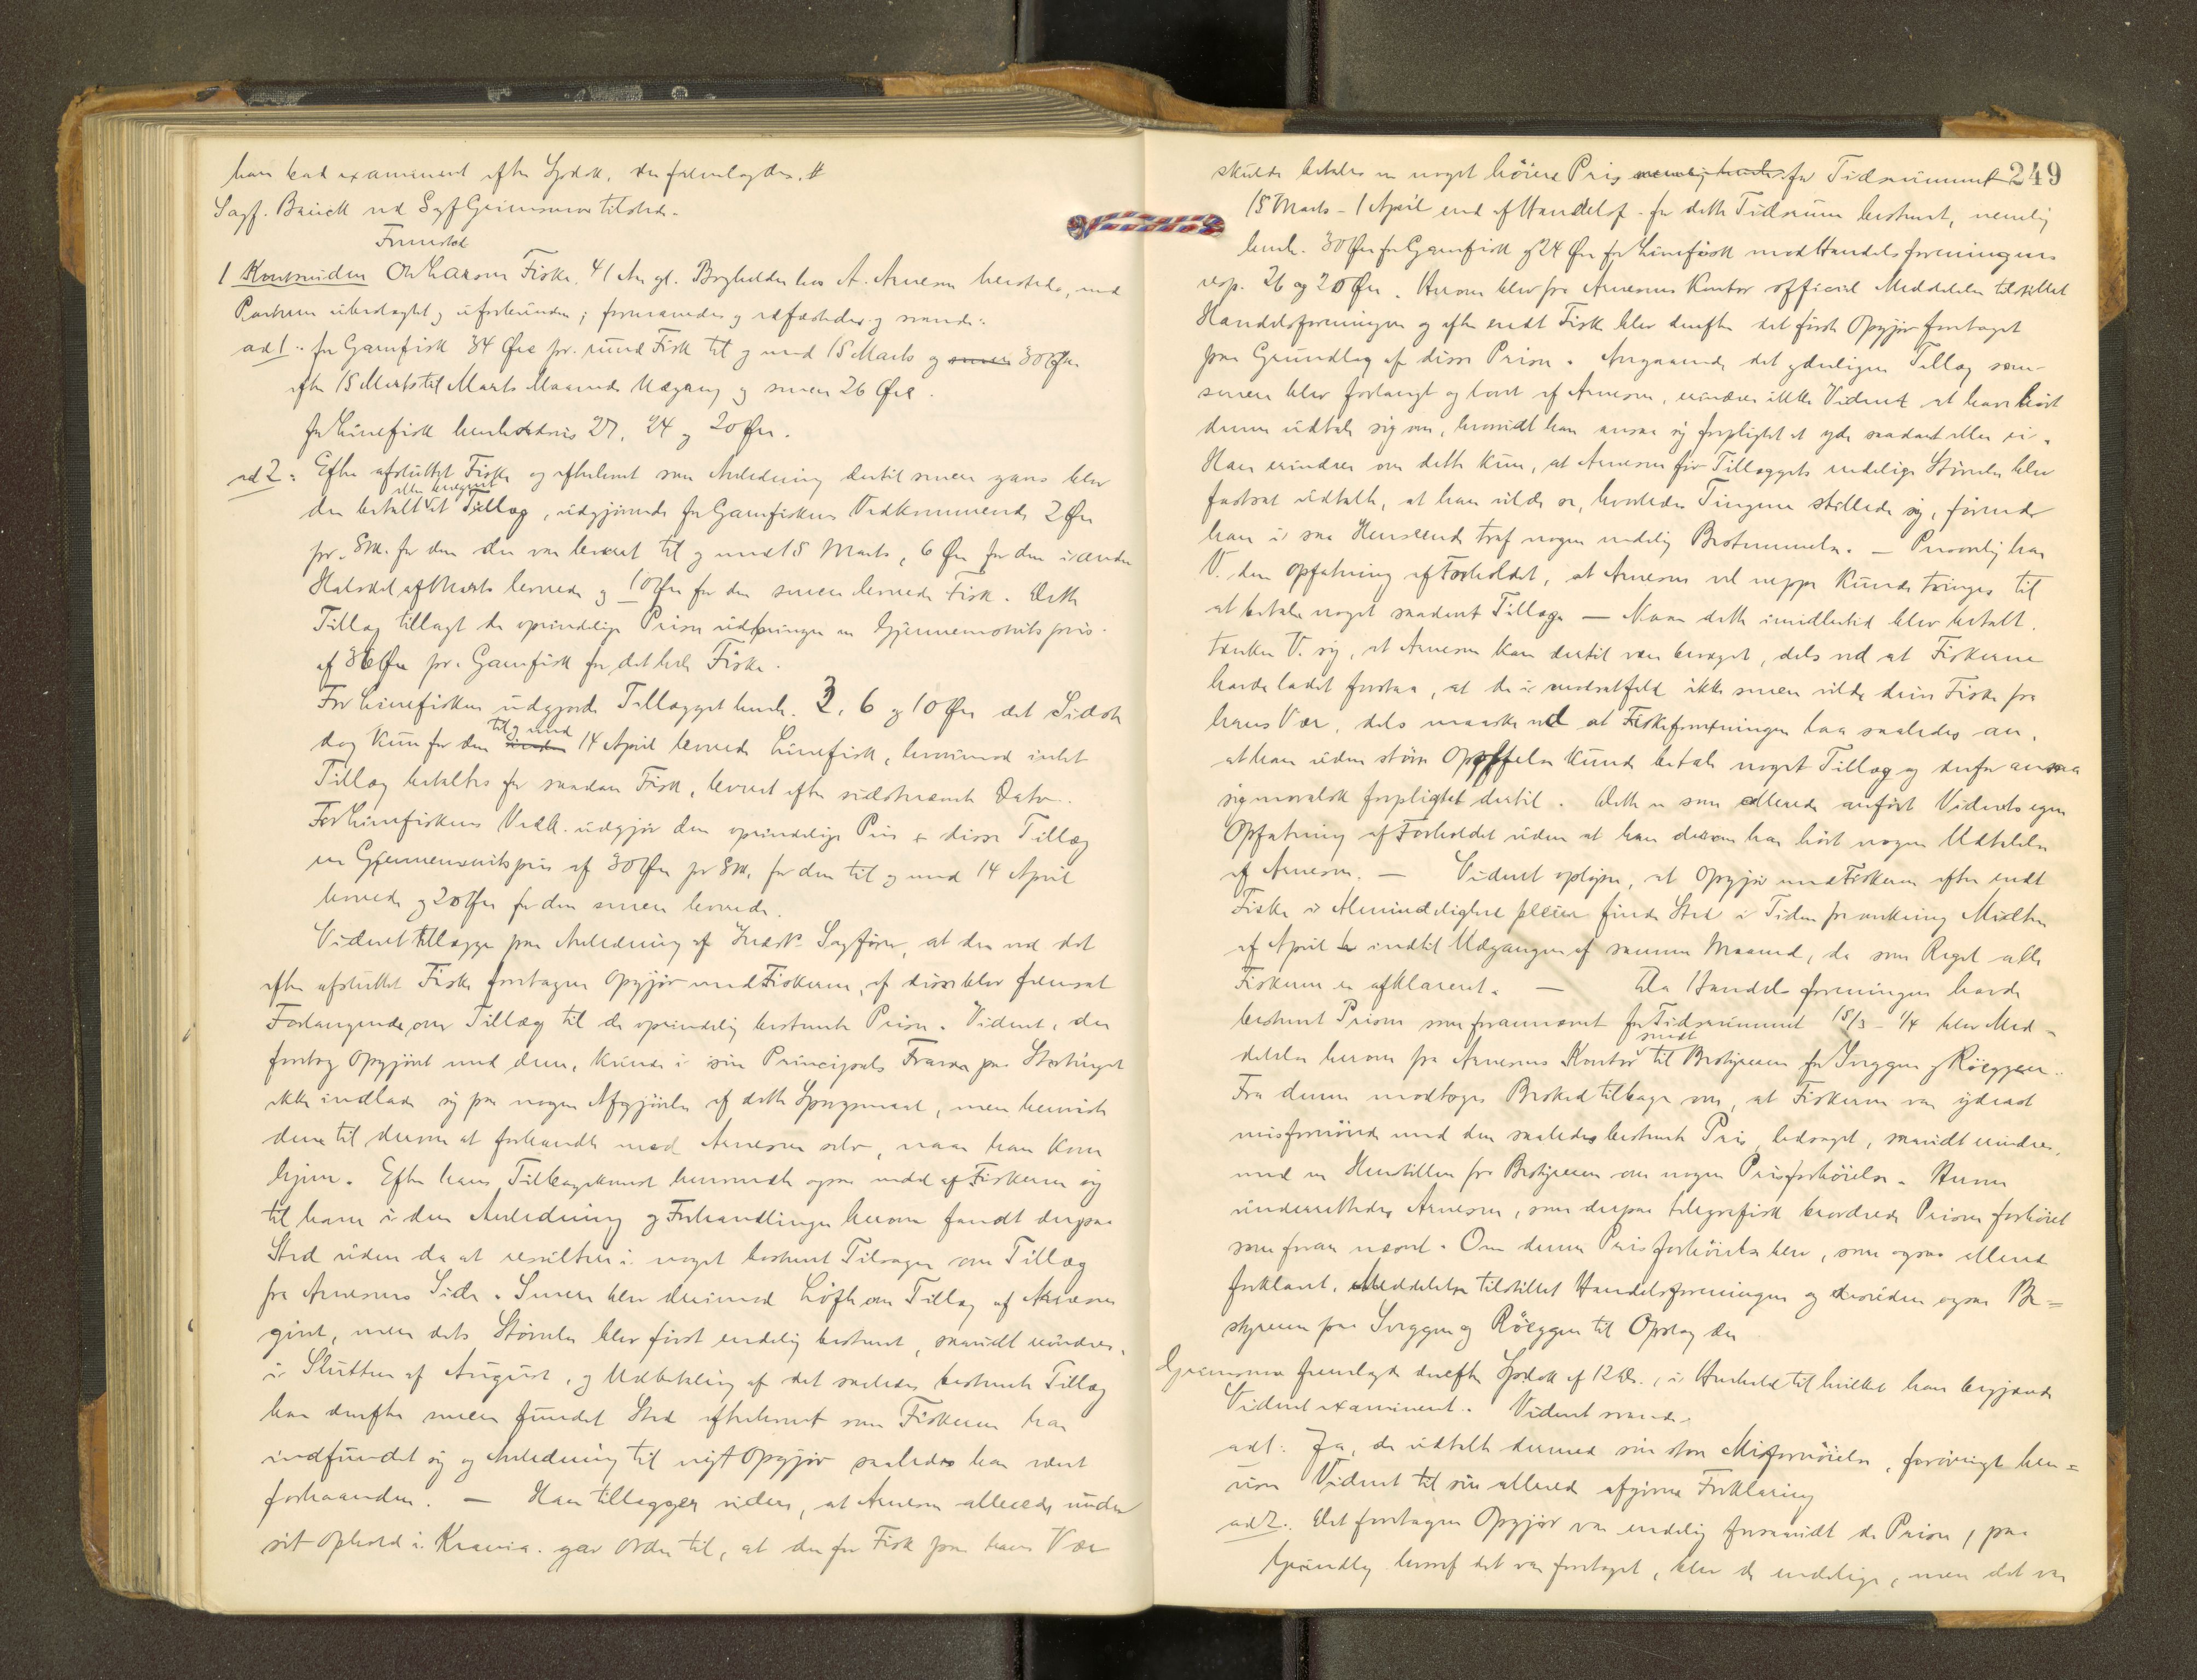 han bad examineret efter Spdok. der fremlagdes. #
Sagf. Bauck ved Sagf Grimsmo tilstede.
Fremstod
1 Kontravidne Ole Larsen Fiske, 41 Aar gl. Bogholder hos A. Arnesen herstede, med
Parterne ubeslægtet og uforbunden; formanedes og edfæstedes og svarede:
ad 1: for Garnfisk 34 Øre pr. rund Fisk til og med 15 Marts og 30 Øre
efter 15 Marts til Marts Maaneds Udgang og senere 26 Øre.
for Linefisk henholdsvis 27, 24 og 20 Øre.
ad 2: Efter afsluttet Fiske og efterhvert som Anledning dertil senere gaves blev
der betalt et Tillæg, udgjørende for Garnfiskens Vedkommende 2 Øre
pr. Stk. for den der var leveret til og med 15 Marts, 6 Øre for den i anden
Halvdel af Marts leverede og 10 Øre for den senere leverede Fisk. Dette
Tillæg tillagt de oprindelige Priser udbringer en Gjennemsnitspris
af 36 Øre pr. Garnfisk for det hele Fiske.
For Linefisken udgjorde Tillægget henh. 3, 6 og 10 Øre det Sidste
dog kun for den til og med 14 April leverede Linefisk, hvorimod intet
Tillæg betaltes for saadan Fisk, leveret efter sidstnævnte Dato.
For Linefiskens Vedk. udgjør den oprindelige Pris + disse Tillæg
en Gjennemsnitspris af 30 Øre pr Stk. for den til og med 14 April
leverede og 20 Øre for den senere leverede.
Vidnet tillægger paa Anledning af Indst. Sagfører, at der ved det
efter afsluttet Fiske foretagne Opgjør med Fiskerne, af disse blev fremsat
Forlangende om Tillæg til de oprindelig bestemte Priser. Vidnet, der
foretog Opgjøret med dem, kunde i sin Principals Fravær paa Stortinget
ikke indlade sig paa nogen Afgjørelse af dette Spørgsmaal, men henviste
dem til derom at forhandle med Arnesen selv, naar han kom
hjem. Efter hans Tilbagekomst henvendte ogsaa endel af Fiskerne sig
til ham i den Anledning og Forhandlinger herom fandt derpaa
Sted uden da at resultere i noget bestemt Tilsagn om Tillæg
fra Arnesens Side. Senere blev derimod Løfte om Tillæg af Arnesen
givet, men dets Størrelse blev først endelig bestemt, saavidt erindres,
i Slutten af August, og Udbetaling af det saaledes bestemte Tillæg
har derefter senere fundet Sted efterhvert som Fiskerne har
indfundet sig og Anledning til nyt Opgjør saaledes har været
forhaanden. — Han tillægger videre, at Arnesen allerede under
sit Ophold i Kr.ania. gav Ordre til, at der for Fisk paa hans Vær
249
skulde betales en noget høiere Pris for Tidsrummet
15 Marts - 1 April end af Handelsf. for dette Tidsrum bestemt, nemlig
henh. 30 Øre for Garnfisk og 24 Øre for Linefisk mod Handelsforeningens
resp. 26 og 20 Øre. Herom blev fra Arnesens Kontor officiel Meddelelse tilstillet
Handelsforeningen og efter endt Fiske blev derefter det første Opgjør foretaget
paa Grundlag af disse Priser. Angaaende det yderligere Tillæg som
senere blev forlangt og lovet af Arnesen, erindrer ikke Vidnet at have hørt
denne udtale sig om, hvorvidt han ansaa sig forpligtet at yde saadant eller ei.
Han erindrer om dette kun, at Arnesen før Tillæggets endelige Størrelse blev
fastsat udtalte, at han vilde se, hvorledes Tingene stillede sig, førend
han i saa Henseende traf nogen endelig Bestemmelse. — Personlig har
V. den Opfatning af Forholdet, at Arnesen vel neppe kunde tvinges til
at betale noget saadant Tillæg. — Naar dette imidlertid blev betalt,
tænker V. sig, at Arnesen kan dertil være bevæget, dels ved at Fiskerne
havde ladet forstaa, at de i modsatfald ikke senere vilde drive Fiske fra
hans Vær, dels maaske ved at Fiskeforretningen laa saaledes an,
at han uden større Opoffrelse kunde betale noget Tillæg og derfor ansaa
sig moralsk forpligtet dertil. Dette er som allerede anført Vidnets egen
Opfatning af Forholdet uden at han derom har hørt nogen Udtalelse
af Arnesen. — Vidnet oplyser, at Opgjør med Fiskerne efter endt
Fiske i Almindelighed pleier finde Sted i Tiden fra omkring Midten
af April indtil Udgangen af samme Maaned, da som Regel alle
Fiskerne er afklareret. — Da Handelsforeningen havde
bestemt Prisen som forannævnt for Tidsrummet 15/3 - 1/4 blev Med-
delelse herom fra Arnesens Kontor sendt til Bestyreren for Sveggen og Røeggen.
Fra denne modtoges Besked tilbage om, at Fiskerne var yderst
misfornøiede med den saaledes bestemte Pris, ledsaget, saavidt erindres,
med en Henstillen fra Bestyreren om nogen Prisforhøielse. Herom
underrettedes Arnesen, som derpaa telegrafisk beordrede Prisen forhøiet
som foran nævnt. Om denne Prisforhøielse blev, som ogsaa allerede
forklaret, Meddelelse tilstillet Handelsforeningen og desuden ogsaa Be=
styreren paa Sveggen og Røeggen til Opslag der
Grimsmo fremlagde derefter Spdok af 12 ds., i Henhold til hvilket han begjærede
Vidnet examineret. Vidnet svarede:
ad 1. Ja, de udtalte dermed sin store Misfornøielse, forøvrigt hen=
viser Vidnet til sin allerede afgivne Forklaring
ad 2. Det foretagne Opgjør var endelig forsaavidt de Priser, paa
Grundlag hvoraf det var foretaget, blev de endelige, men det var